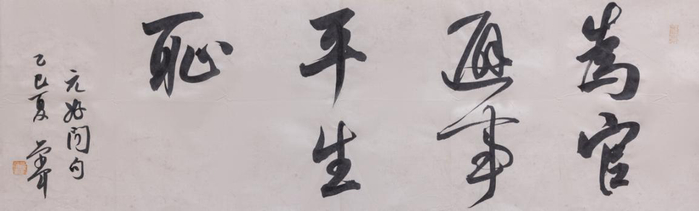 為官
避事
平生
恥
元好问句
乙巳夏